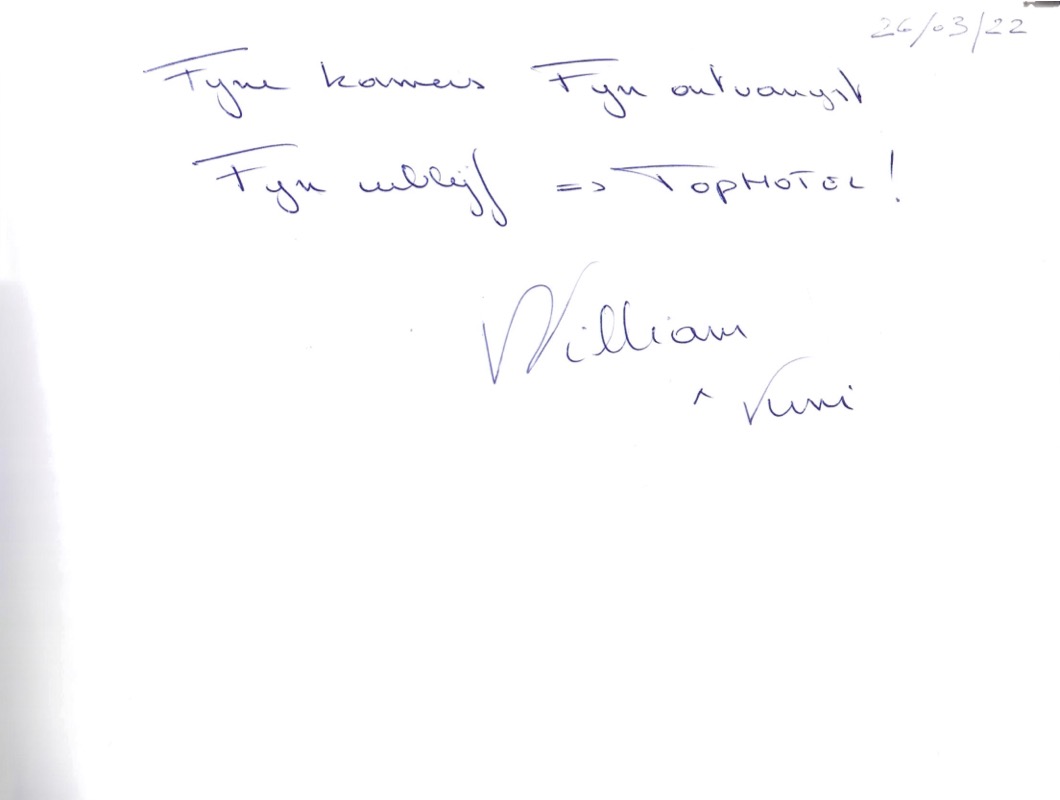 26/03/22
Fyne kamers Fyn ontvangst
Fyn verblijf => TOPHOTEL!
William
^